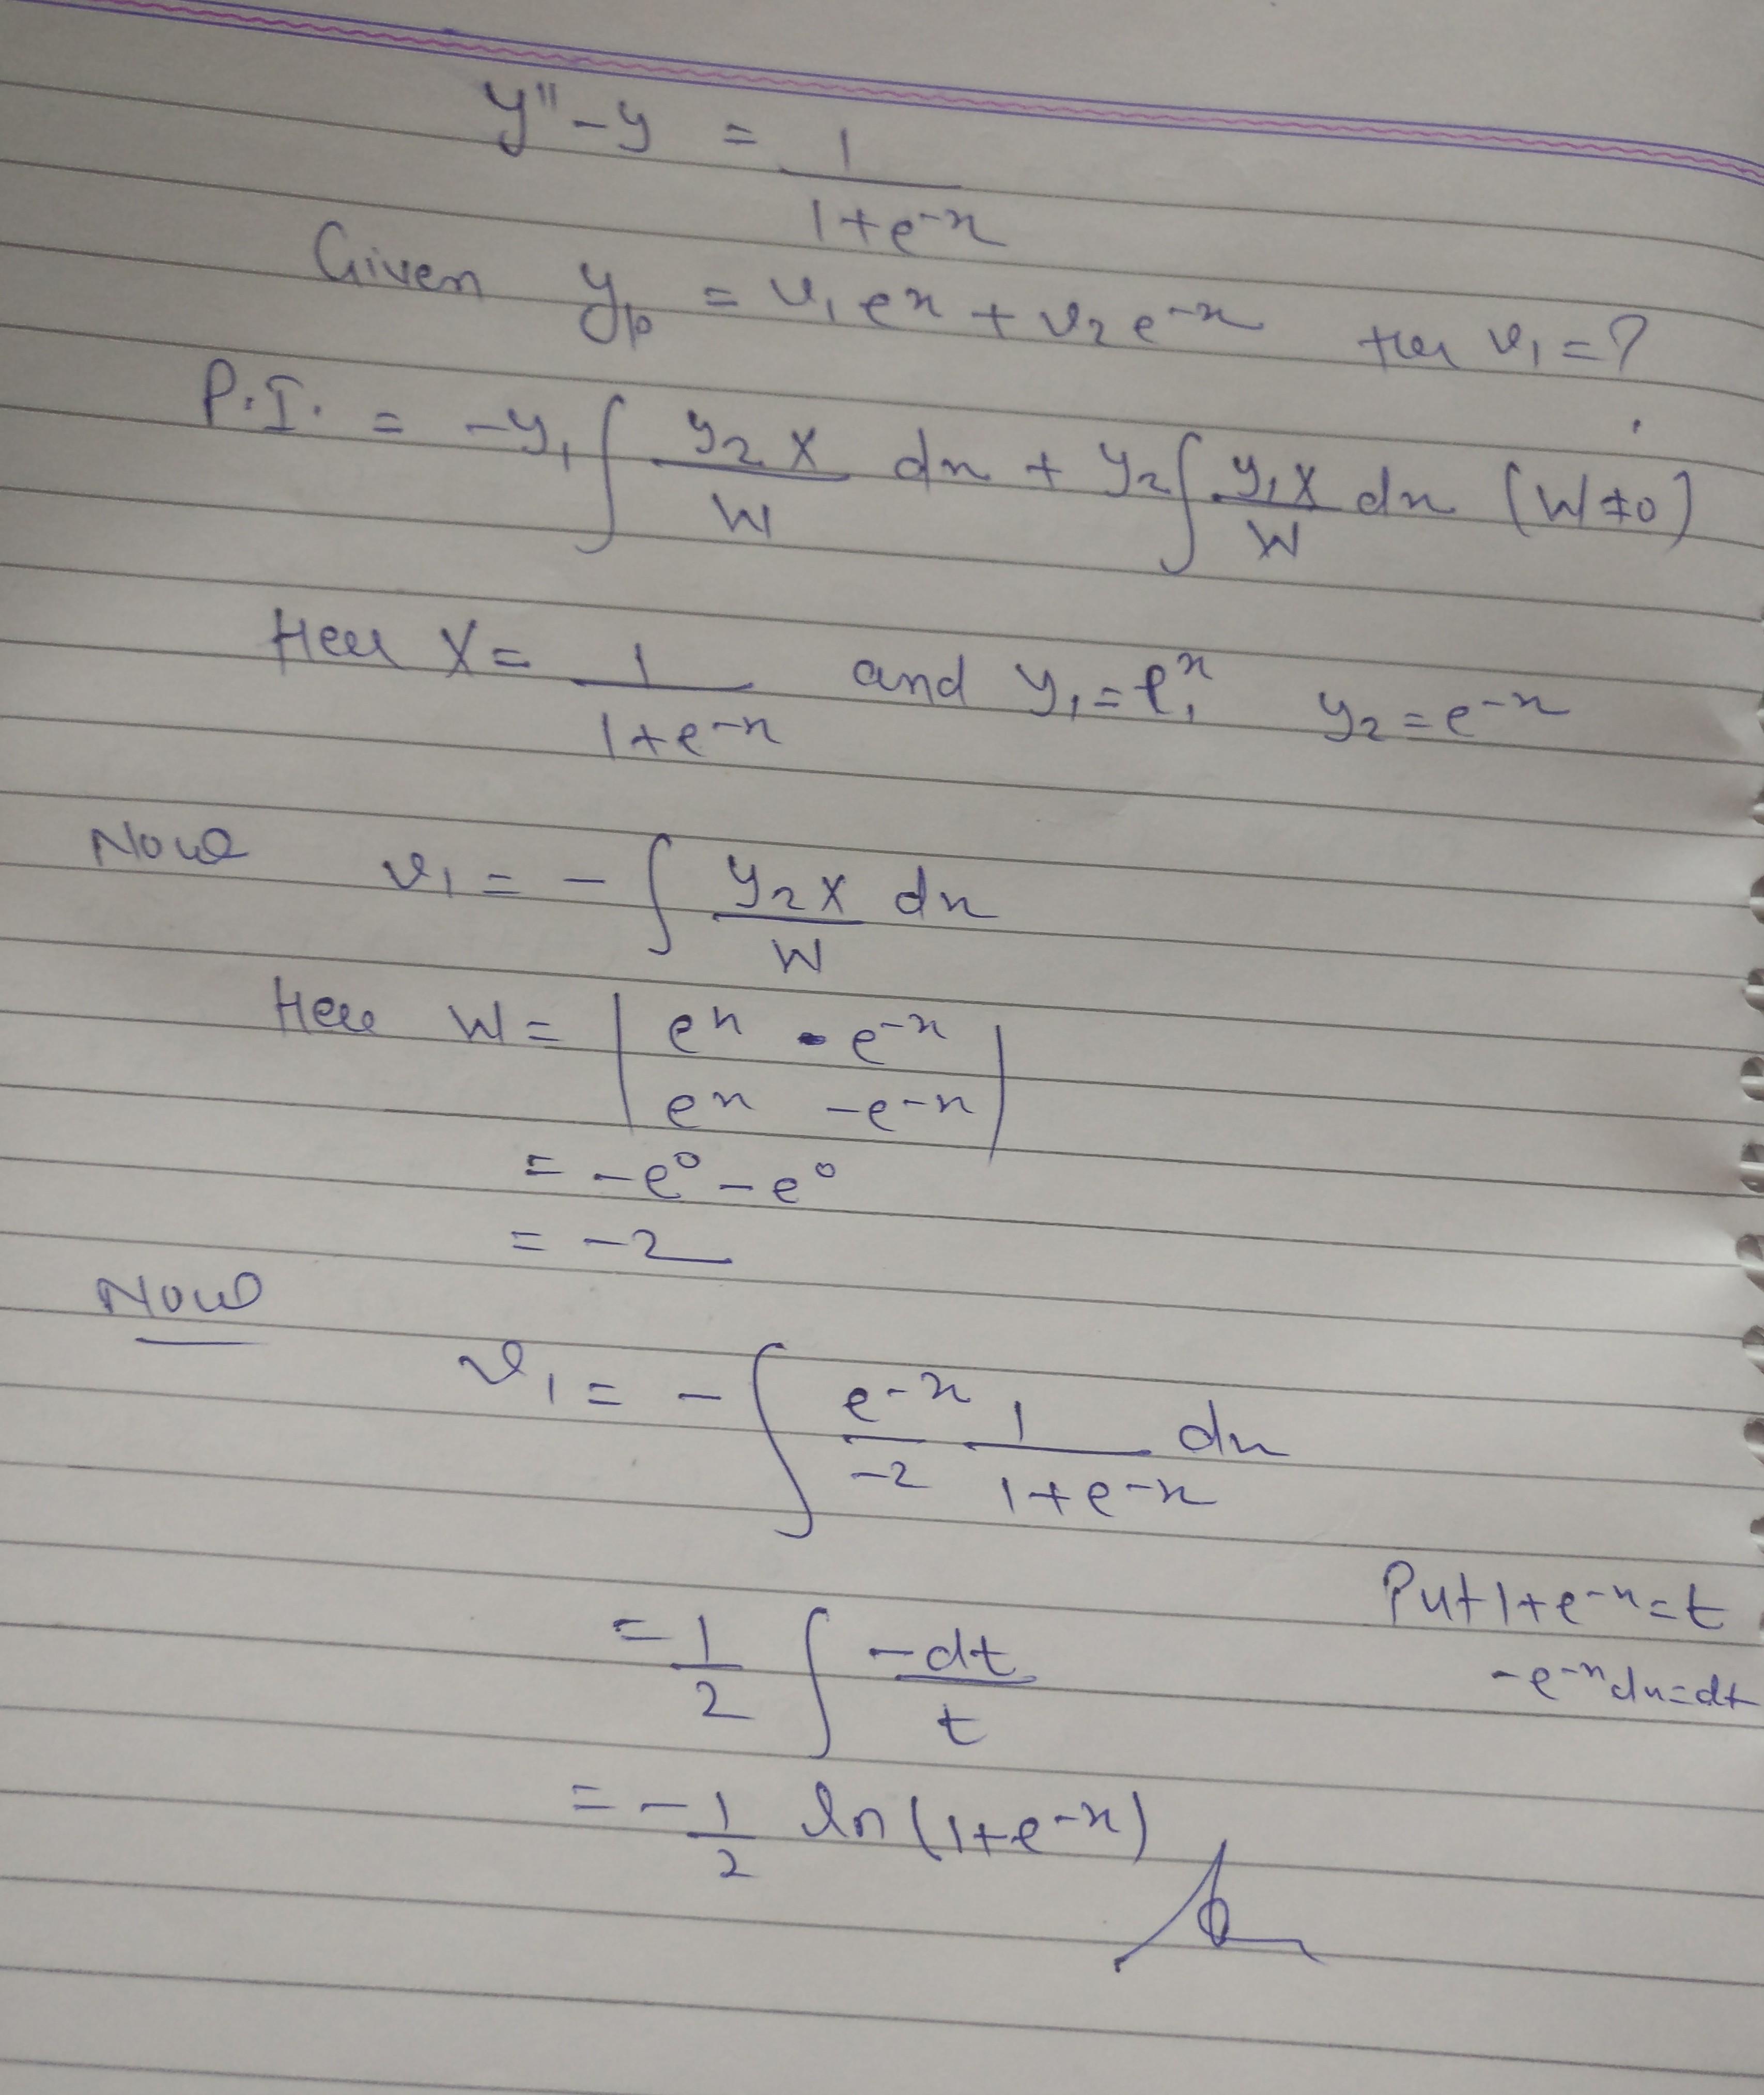 y'' - y = 1/(1+e^-x)
Given y_p = v₁e^x + v₂e^-x then v₁ = ?
P.I. = -y₁ ∫ (y₂X/W) dx + y₂ ∫ (y₁X/W) dx (W≠0)
Here X = 1/(1+e^-x) and y₁ = e^x, y₂ = e^-x
Now v₁ = - ∫ (y₂X/W) dx
Here W = | e^x e^-x |
| e^x -e^-x |
= -e⁰ - e⁰
= -2
Now
v₁ = - ∫ (e^-x/-2) (1/(1+e^-x)) dx
Put 1+e^-x = t
= 1/2 ∫ -dt/t
-e^-x dx = dt
= -1/2 ln(1+e^-x)